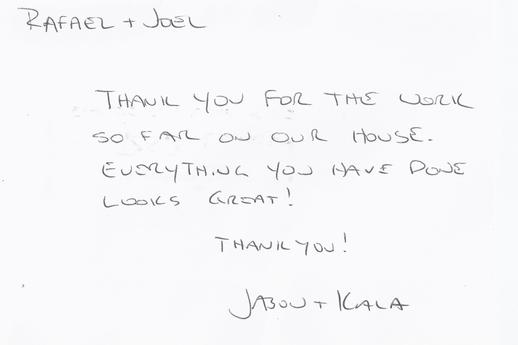 RAFAEL + JOEL
THANK YOU FOR THE WORK
SO FAR ON OUR HOUSE.
EVERYTHING YOU HAVE DONE
LOOKS GREAT!
THANK YOU!
JASON + KALA